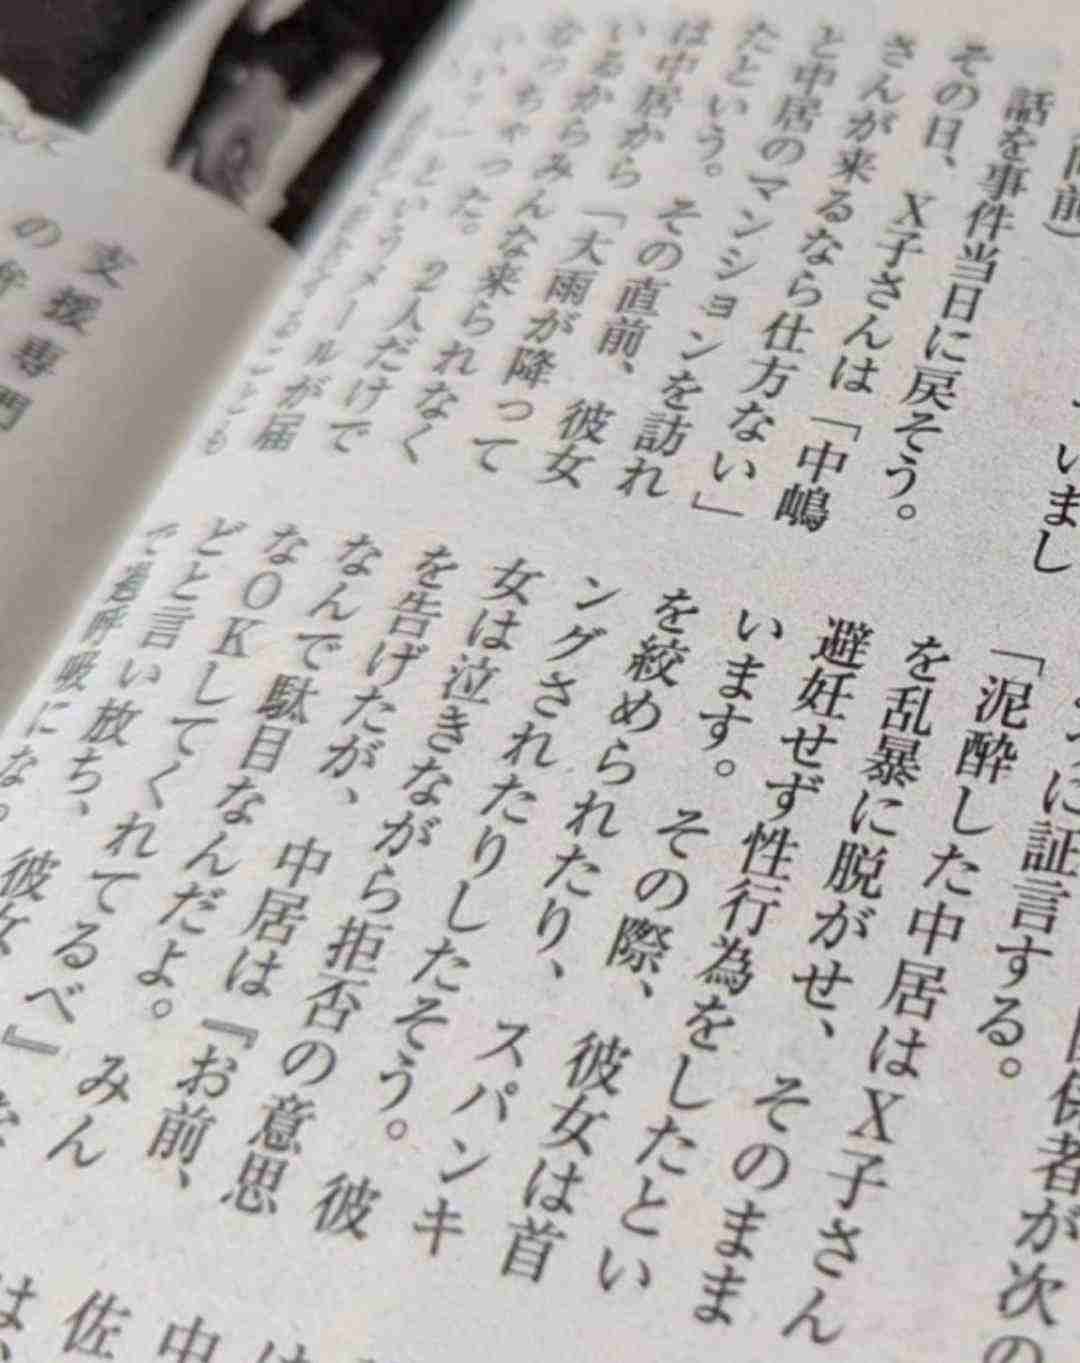 前)
いまし
話を事件当日に戻そう。
その日、X子さんは「中嶋
さんが来るなら仕方ない」
と中居のマンションを訪れ
たという。その直前、彼女
は中居から「大雨が降って
いるからみんな来られなく
なっちゃった。2人だけで
というメールが届
係者が次の
に証言する。
「泥酔した中居はX子さん
を乱暴に脱がせ、そのまま
避妊せず性行為をしたとい
います。その際、彼女は首
を絞められたり、スパンキ
ングされたりしたそう。彼
女は泣きながら拒否の意思
を告げたが、中居は『お前、
なんで駄目なんだよ。みん
なOKしてくれてるべ』
どと言い放ち、彼女
で過呼吸にな
支援専門
の